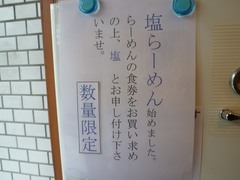 塩らーめん始めました。
らーめんの食券をお買い求め
の上、塩 とお申し付け下さ
いませ。
数量限定